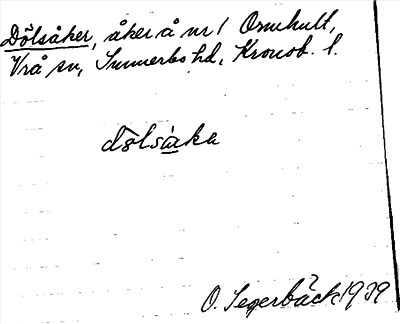 Dölsåker, åker å nr 1 Ormhult,
Vrå sn, Sunnerbo hd, Kronob. l.
dölsåka
O. Segerbäck 1939